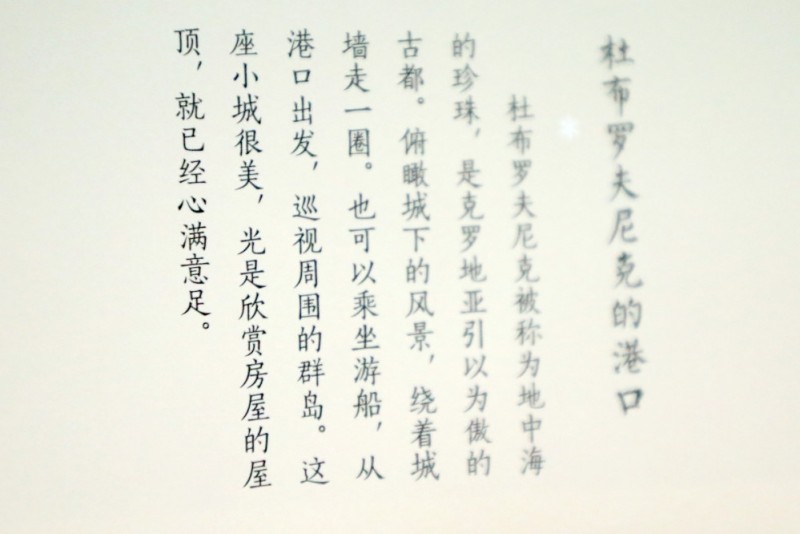 杜布罗夫尼克的港口
杜布罗夫尼克被称为地中海
的珍珠，是克罗地亚引以为傲的
古都。俯瞰城下的风景，绕着城
墙走一圈。也可以乘坐游船，从
港口出发，巡视周围的群岛。这
座小城很美，光是欣赏房屋的屋
顶，就已经心满意足。